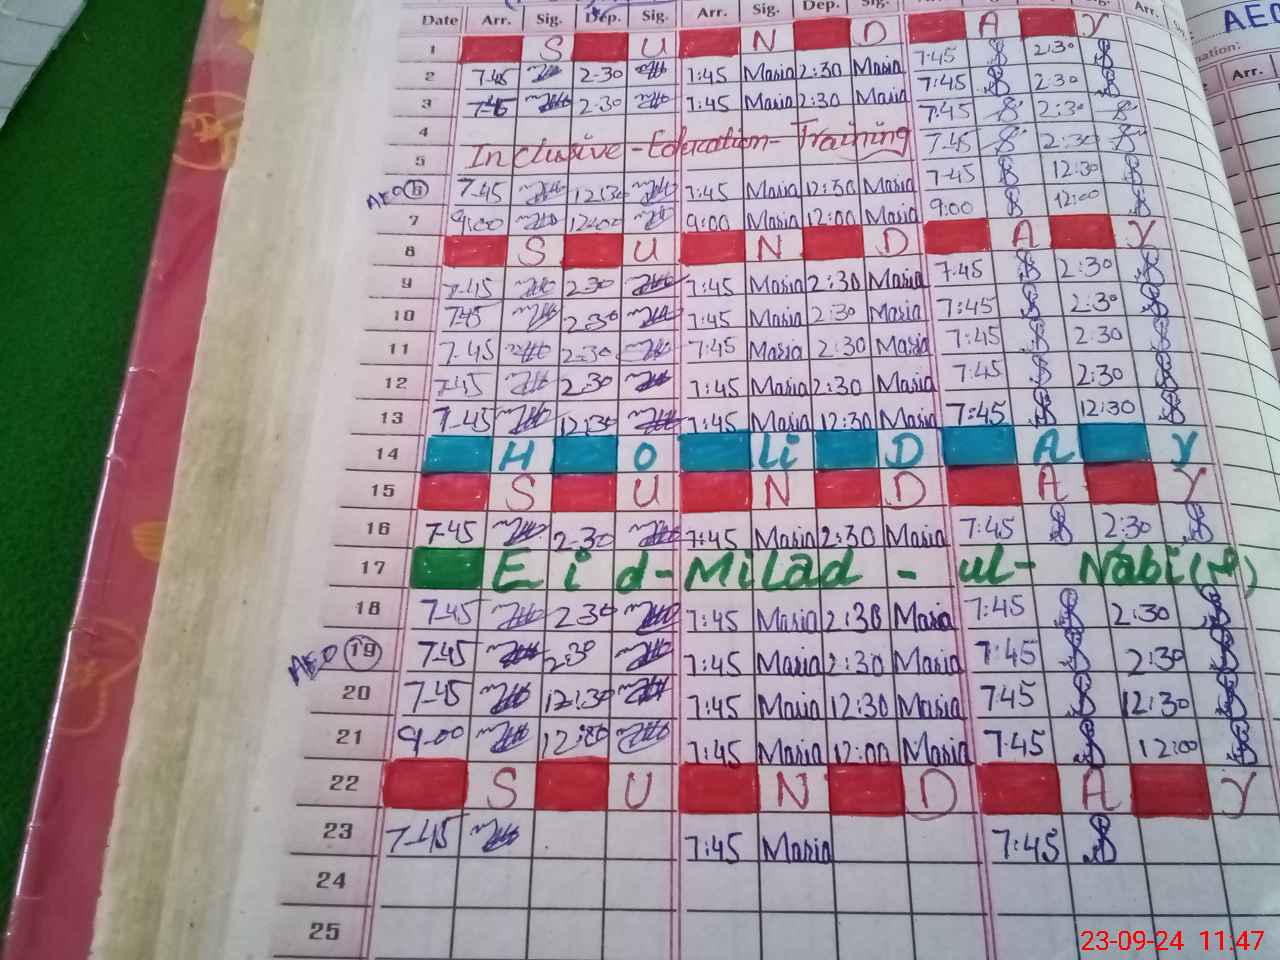 Date Arr. Sig. Dep. Sig. Arr. Sig. Dep. Sig. Arr.
AEO
Arr.
1 S U N D A Y
2 7-45 2-30 7:45 Maria 2:30 Maria 7:45 2:30
3 7-45 2-30 7:45 Maria 2:30 Maria 7:45 2:30
4 7:45 2:30
Inclusive - Education - Training
5 7:45 2:30
AEO 6 7-45 12:30 7:45 Maria 12:30 Maria 7-45 12:30
7 9:00 12:00 9:00 Maria 12:00 Maria 9:00 12:00
8 S U N D A Y
9 7-45 2-30 7:45 Maria 2:30 Maria 7:45 2:30
10 7-45 2-30 7:45 Maria 2:30 Maria 7:45 2:30
11 7-45 2-30 7:45 Maria 2:30 Maria 7:45 2:30
12 7-45 2-30 7:45 Maria 2:30 Maria 7:45 2:30
13 7-45 12:30 7:45 Maria 12:30 Maria 7:45 12:30
14 H O Li D A Y
15 S U N D A Y
16 7-45 2-30 7:45 Maria 2:30 Maria 7:45 2:30
17 Eid-Milad - ul- Nabi
18 7-45 2-30 7:45 Maria 2:30 Maria 7:45 2:30
AEO 19 7-45 2-30 7:45 Maria 2:30 Maria 7:45 2:30
20 7-45 12:30 7:45 Maria 12:30 Maria 7:45 12:30
21 9-00 12:00 7:45 Maria 12:00 Maria 7:45 12:00
22 S U N D A Y
23 7-45 7:45 Maria 7:45
24
25
23-09-24 11:47